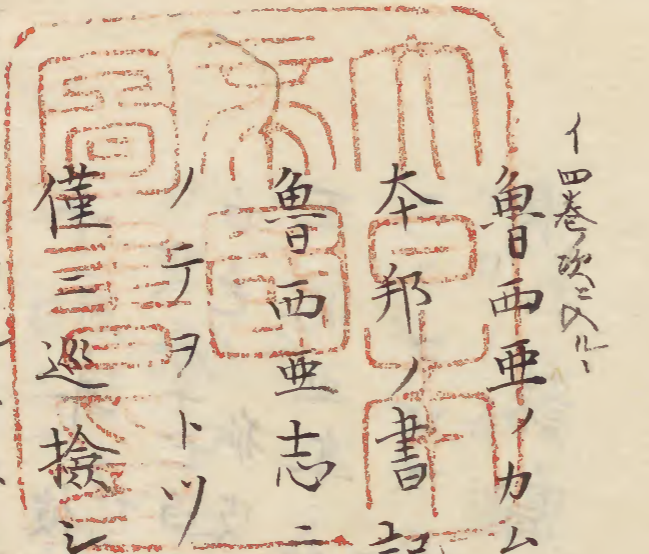 イ四巻ノ次ニ入ル
魯西亜ノカム
本邦ノ書記
魯西亜志ニ
ノ テヲトツ
僅ニ巡撿シ